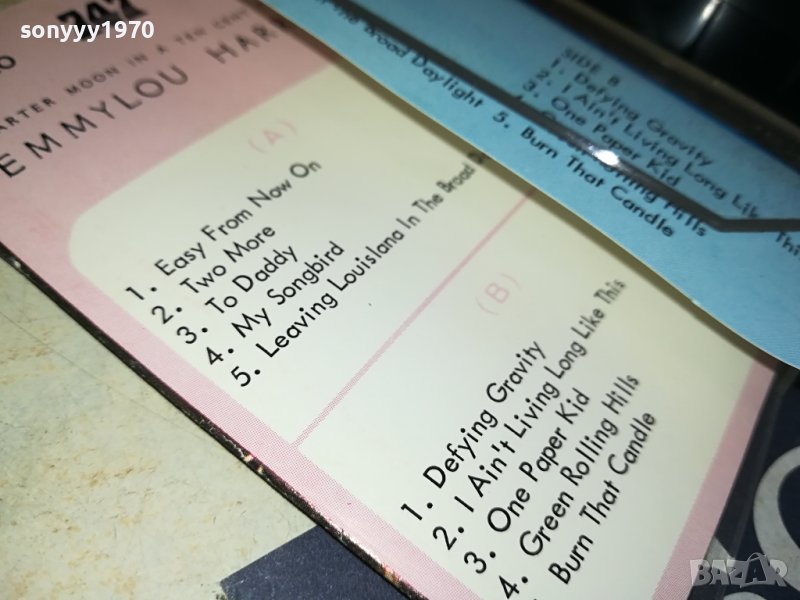 sonyyy1970
ARTER MOON IN A TEN CENT
EMMYLOU HAR
(A)
1. Easy From Now On
2. Two More
3. To Daddy
4. My Songbird
5. Leaving Louislana In The Broad D
(B)
1. Defying Gravity
2. I Ain't Living Long Like This
3. One Paper Kid
4. Green Rolling Hills
Burn That Candle
The Broad Daylight
SIDE B
1. Defying Gravity
2. I Ain't Living Long Like This
3. One Paper Kid
Hills
5. Burn That Candle
BAZAR